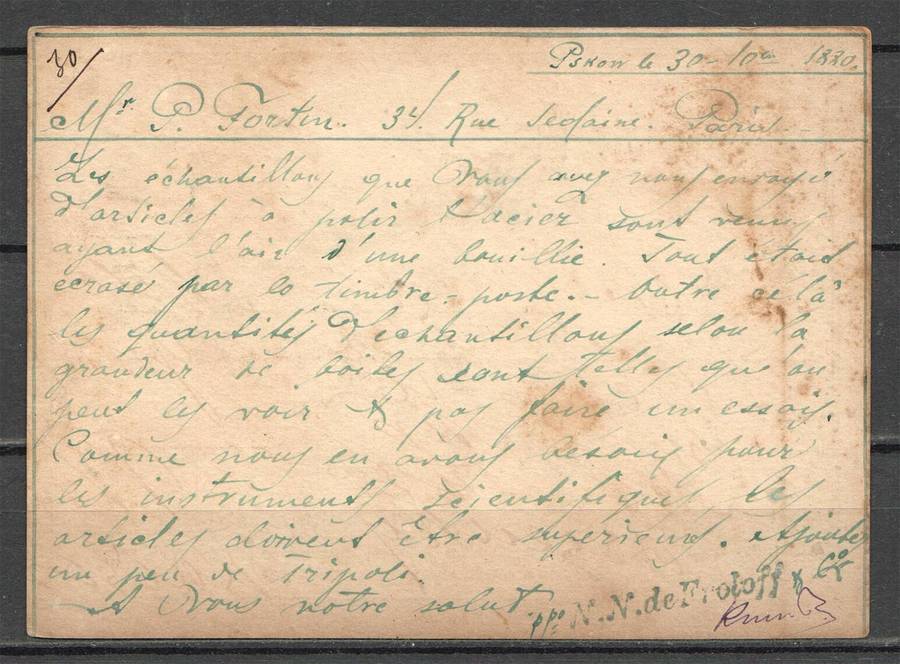 30/
Pskow le 30-10bre 1890.
Mr P. Fortin. 34. Rue Sedaine. Paris.-
Les échantillons que Vous avez nous envoyé
d'articles à polir l'acier sont venus
ayant l'air d'une bouillie. Tout était
ecrasé par le timbre-poste.- Outre celà
les quantités d'echantillons selon la
grandeur de boites sont telles que on
peut les voir & pas faire un essais.
Comme nous en avons besoin pour
les instruments scientifiques les
articles doivent être superieurs. Ajoutez
un peu de Tripoli.
A Vous notre salut.
ppo N. N. de Froloff & Co